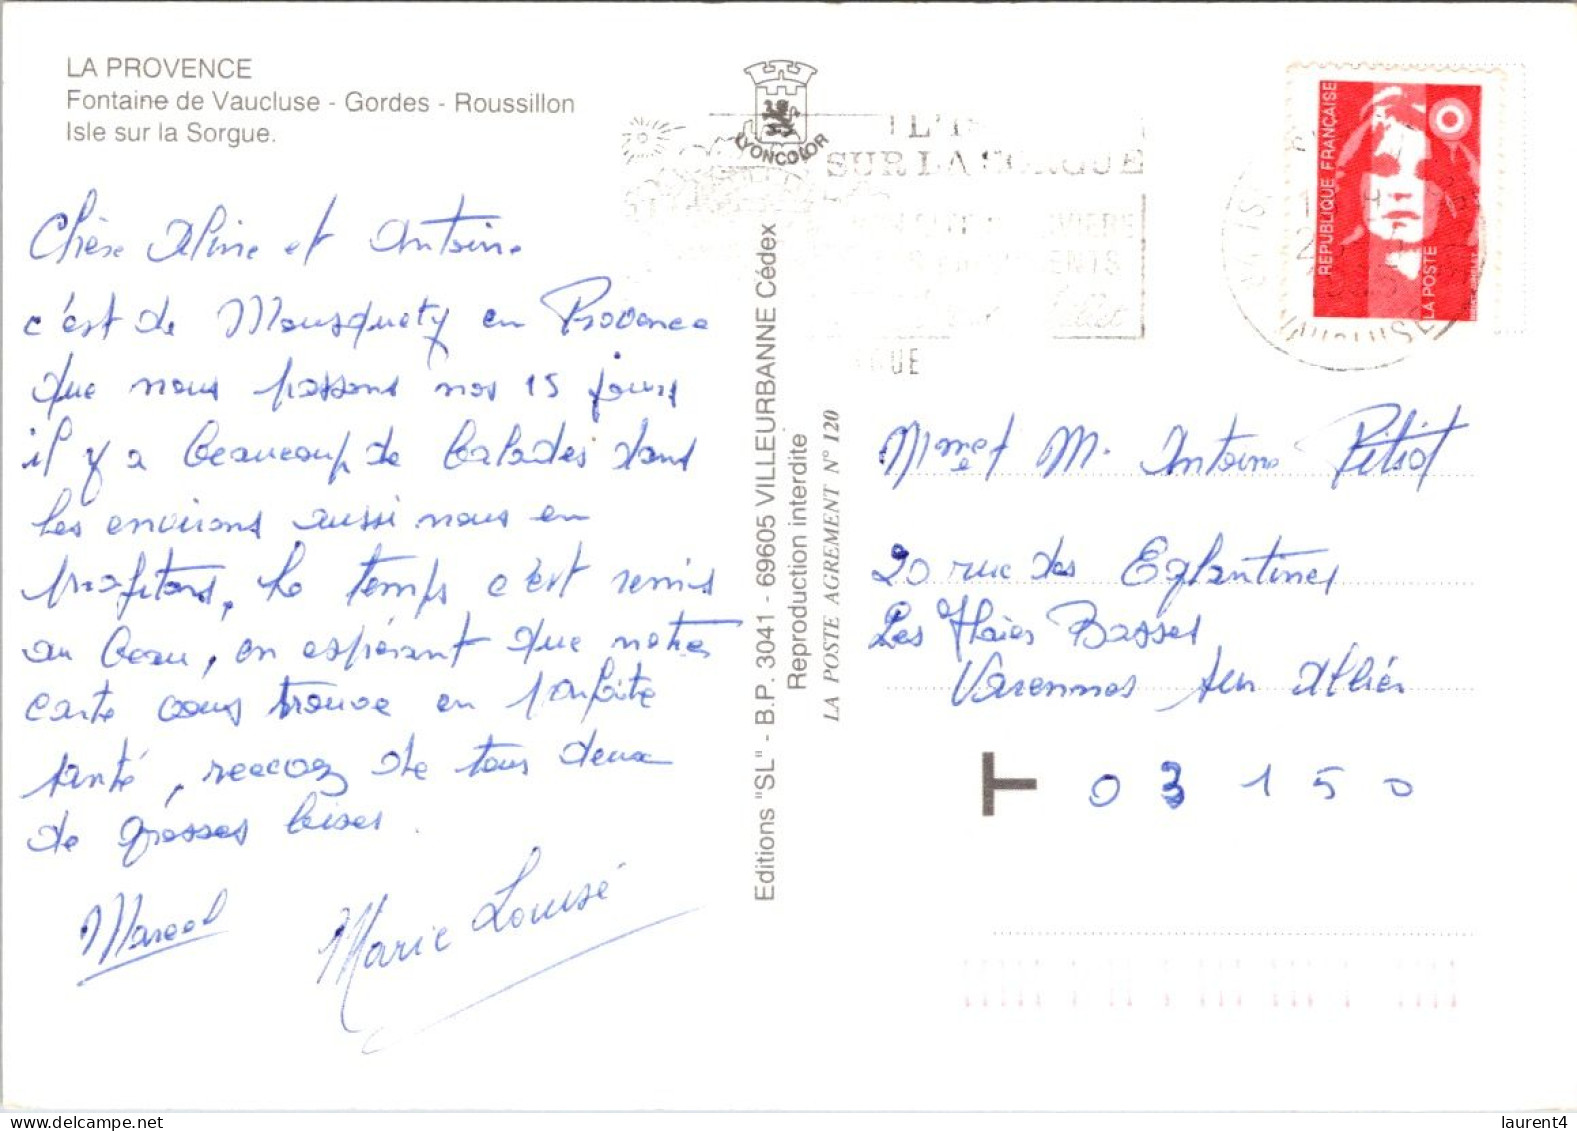 LA PROVENCE
Fontaine de Vaucluse - Gordes - Roussillon
Isle sur la Sorgue.
Chère Aline et Antoine
c'est de Mousquety en Provence
que nous passons nos 15 jours
il y a beaucoup de balades dans
les environs aussi nous en
profitons, le temps c'est remis
au beau, en espérant que notre
carte vous trouve en parfaite
santé, recevez de tous deux
de grosses bises.
Marcel
Marie Louise
LYONCOLOR
Editions "SL" - B.P. 3041 - 69605 VILLEURBANNE Cédex
Reproduction interdite
LA POSTE AGREMENT N° 120
SUR LA SORGUE
REPUBLIQUE FRANÇAISE
LA POSTE
VAUCLUSE
Mme et M. Antoine Pitiot
20 rue des Eglantines
Les Haies Basses
Varennes sur Allier
T 03150
laurent4